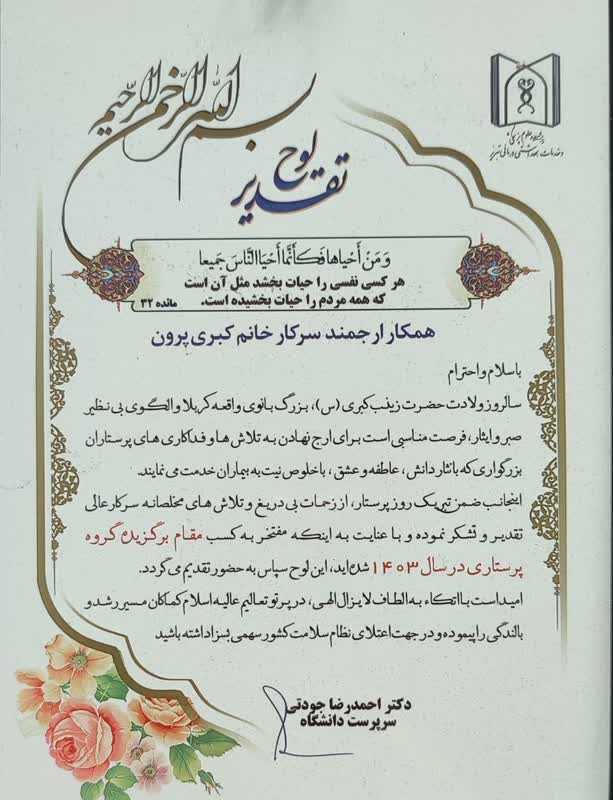 بسم الله الرحمن الرحیم
دانشگاه علوم پزشکی
و خدمات بهداشتی درمانی تبریز
لوح
تقدیر
وَ مَنْ أَحْیاها فَکَأَنَّما أَحْیَا النَّاسَ جَمیعا
هر کسی نفسی را حیات بخشد مثل آن است
که همه مردم را حیات بخشیده است. مائده ۳۲
همکار ارجمند سرکار خانم کبری پرون
با سلام و احترام
سالروز ولادت حضرت زینب کبری (س)، بزرگ بانوی واقعه کربلا و الگوی بی نظیر
صبر و ایثار، فرصت مناسبی است برای ارج نهادن به تلاش ها و فداکاری های پرستاران
بزرگواری که با نثار دانش، عاطفه و عشق، با خلوص نیت به بیماران خدمت می نمایند.
اینجانب ضمن تبریک روز پرستار، از زحمات بی دریغ و تلاش های مخلصانه سرکار عالی
تقدیر و تشکر نموده و با عنایت به اینکه مفتخر به کسب مقام برگزیده گروه
پرستاری در سال ۱۴۰۳ شده اید، این لوح سپاس به حضور تقدیم می گردد.
امید است با اتکاء به الطاف لایزال الهی، در پرتو تعالیم عالیه اسلام کماکان مسیر رشد و
بالندگی را پیموده و در جهت اعتلای نظام سلامت کشور سهمی بسزا داشته باشید
دکتر احمدرضا جودتی
سرپرست دانشگاه